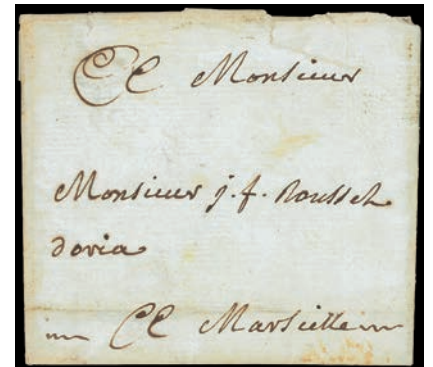 A Monsieur
Monsieur j. f. Rousset
doria
A Marseille